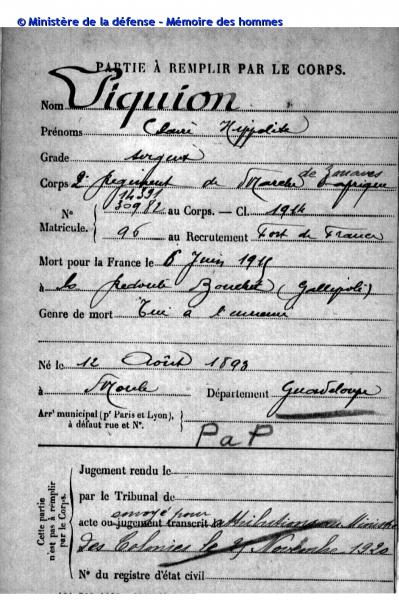 © Ministère de la défense - Mémoire des hommes
PARTIE À REMPLIR PAR LE CORPS.
Nom Piquion
Prénoms Clair Hippolite
Grade sergent
Corps 2e Régiment de Marche de Zouaves d'afrique
14391
N° 30982 au Corps. — Cl. 1914
Matricule. 96 au Recrutement Fort de France
Mort pour la France le 6 Juin 1915
à la redoute Bouchet (Gallipoli)
Genre de mort Tué à l'ennemi
Né le 12 Août 1893
à Moule Département Guadeloupe
Arrt municipal (pr Paris et Lyon), à défaut rue et N°.
PaP
Cette partie n'est pas à remplir par le Corps.
Jugement rendu le
par le Tribunal de
envoyé pour
acte ou jugement transcrit le attributions au Ministre
des Colonies le Novembre 1920
N° du registre d'état civil